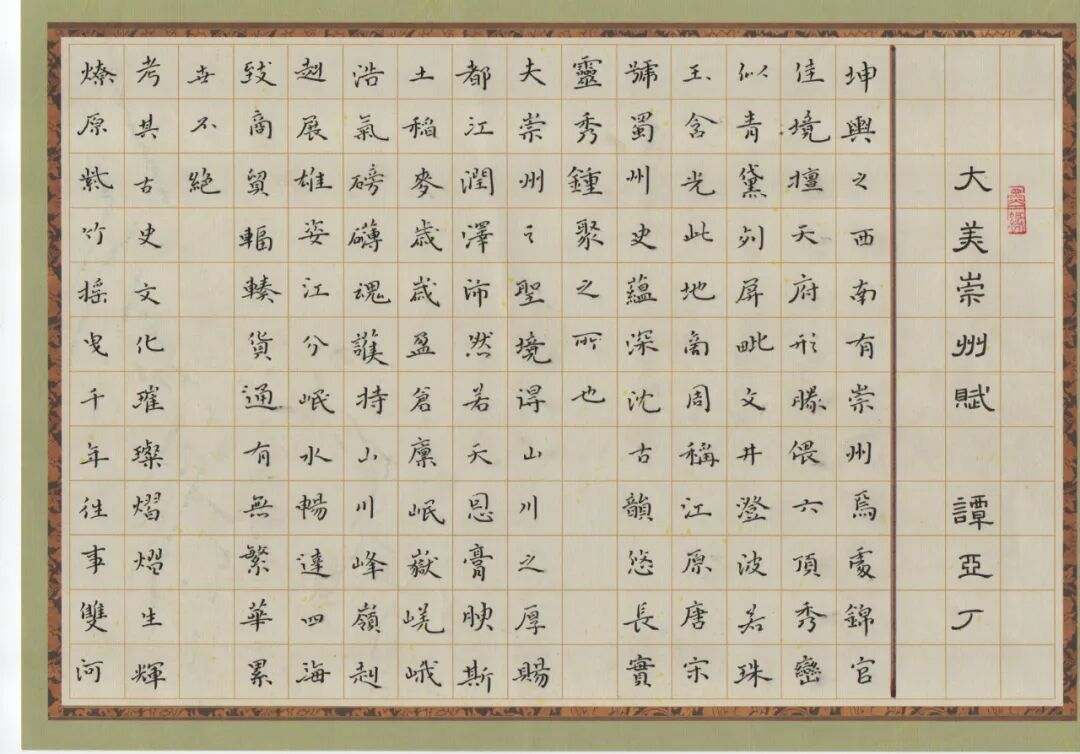 大美崇州賦 譚亞丁
坤輿之西南有崇州焉處錦官
佳境擅天府形勝偎六頂秀巒
似青黛列屏毗文井澄波若珠
玉含光此地商周稱江原唐宋
號蜀州史蘊深沈古韻悠長實
靈秀鍾聚之所也
夫崇州之聖境得山川之厚賜
都江潤澤沛然若天恩膏腴斯
土稻麥歲歲盈倉廩岷嶽嵯峨
浩氣磅礴魂護持山川峰嶺赳
赳展雄姿江分岷水暢達四海
致商貿輻輳貨通有無繁華累
世不絕
考其古史文化璀璨熠熠生輝
燎原紫竹搖曳千年往事雙河